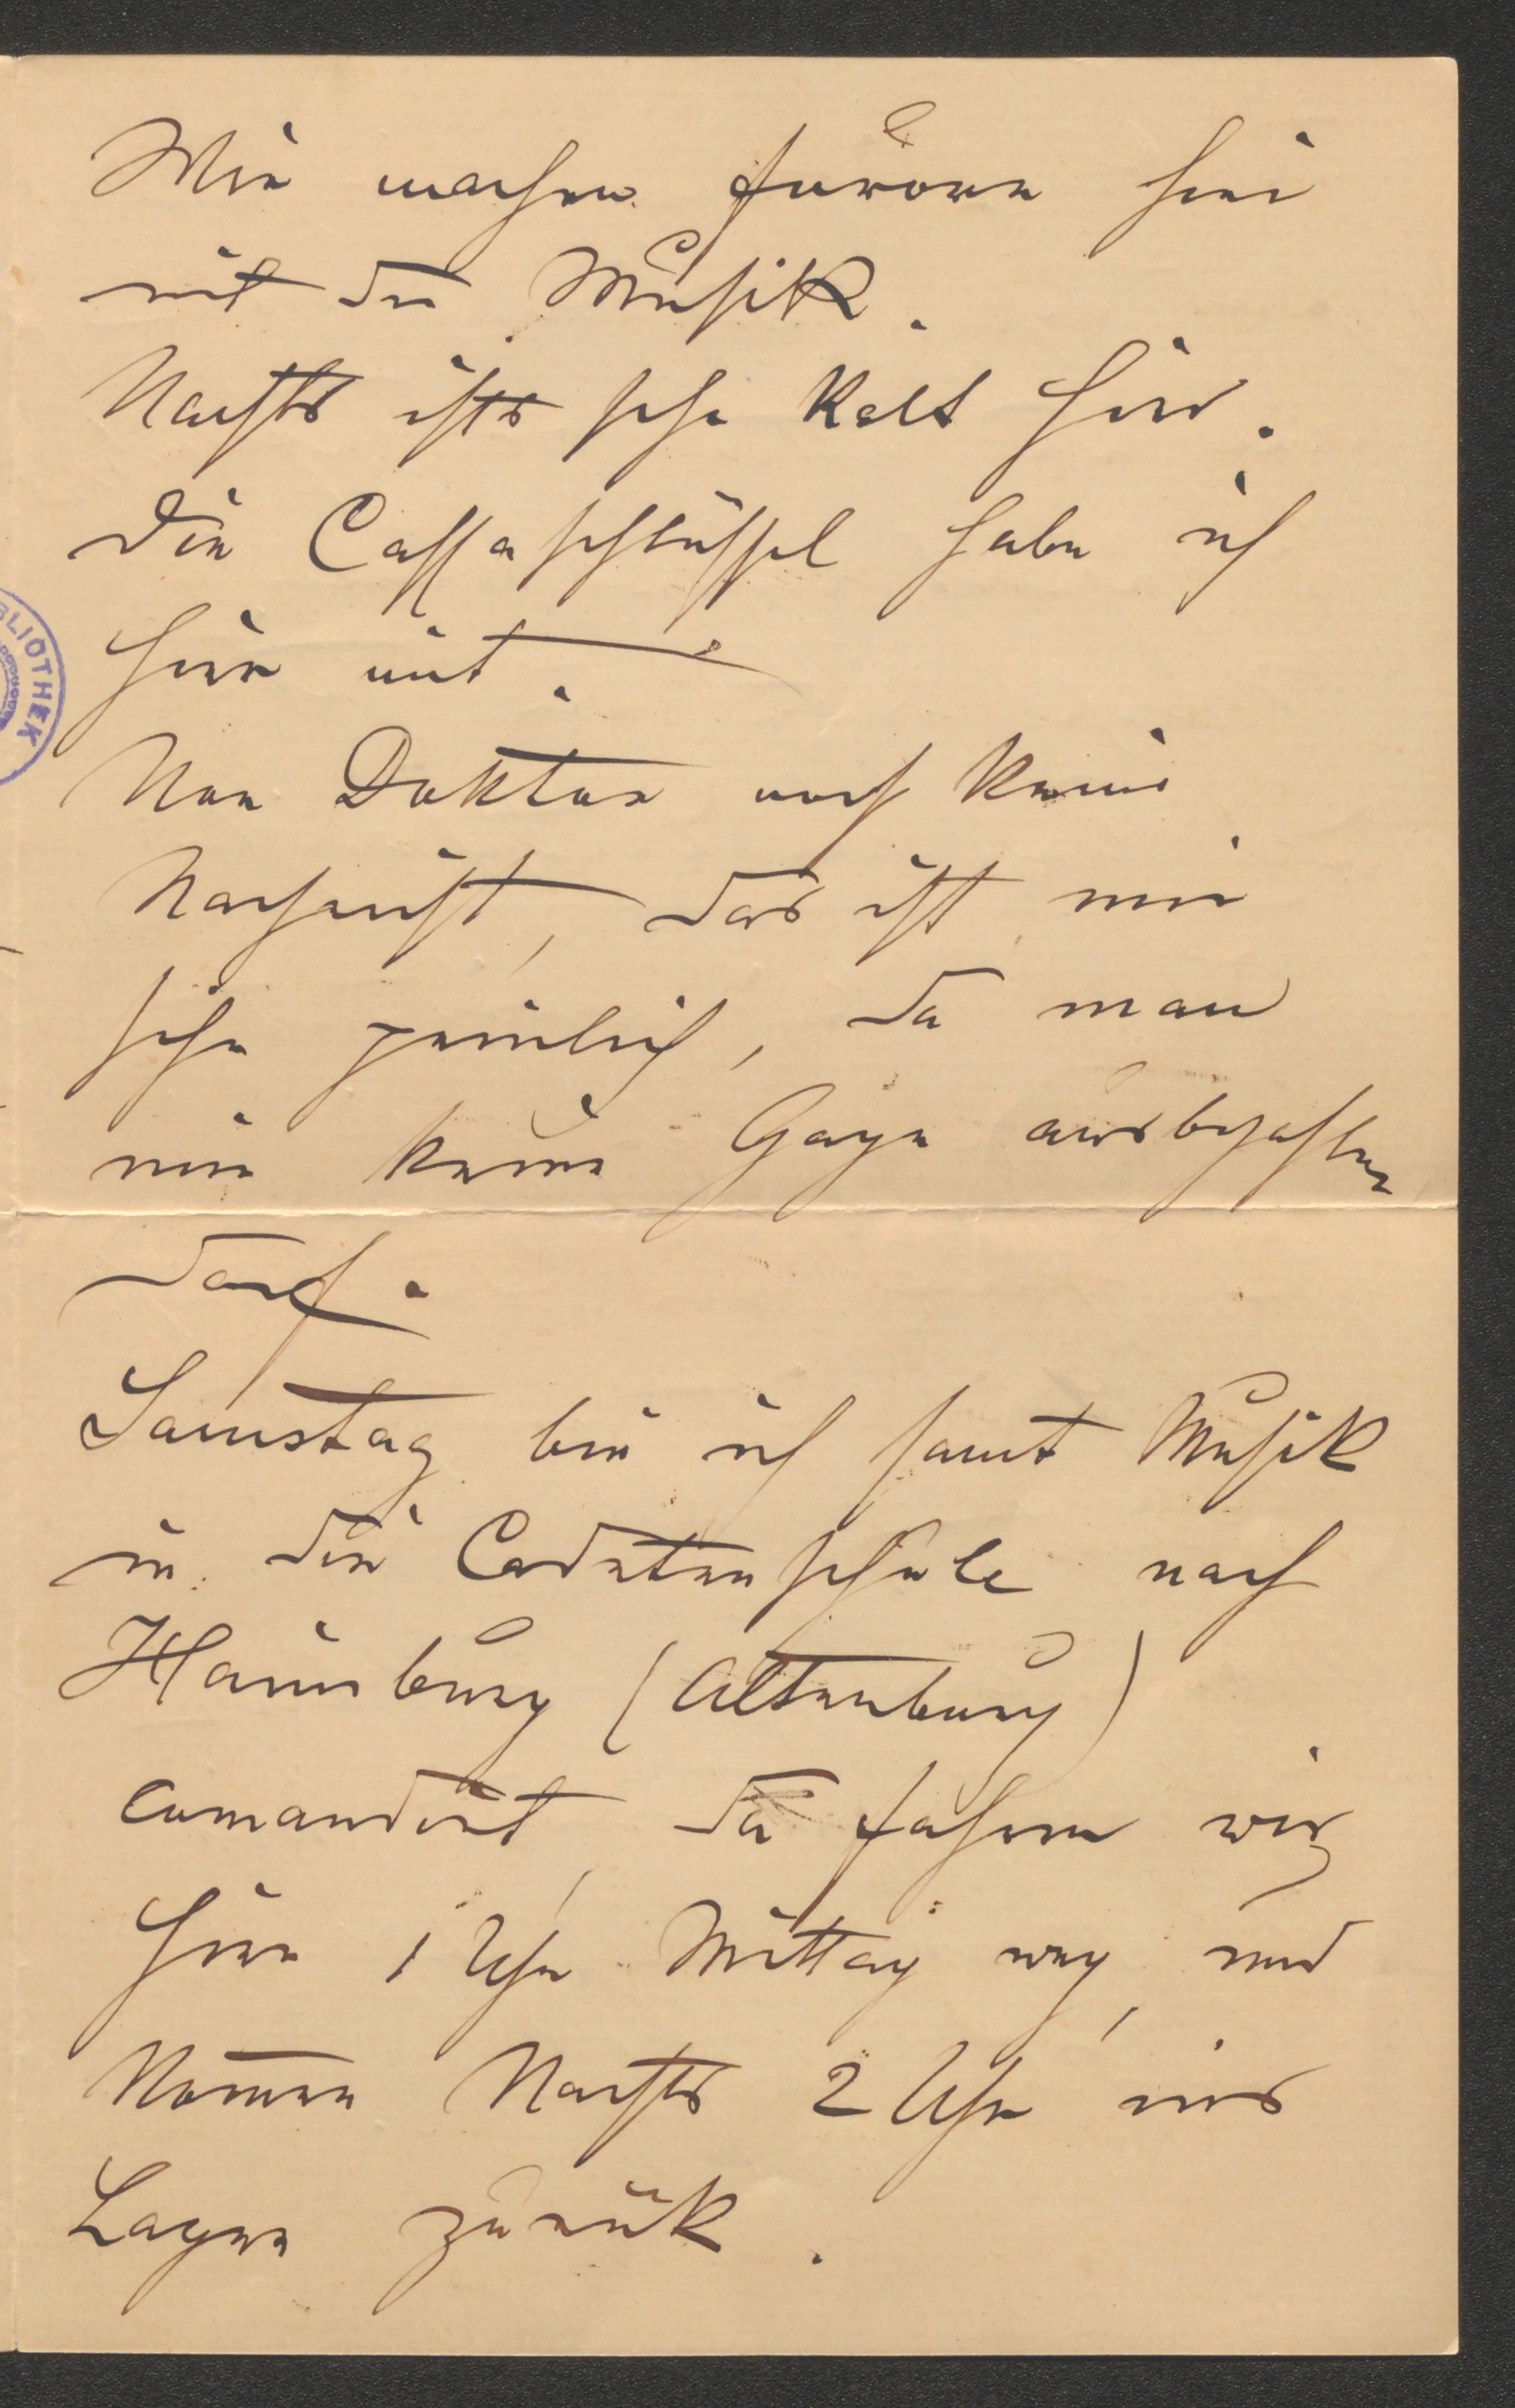 Wir machen furore hier
mit der Musik.
Nachts ists sehr kalt hier.
Die Cassaschlüssel habe ich
hier mit.
BLIOTHEK
Von Doktor noch keine
Nachricht, das ist mir
sehr peinlich, da man
mir keine Gage ausbezahlen
darf.
Samstag bin ich samt Musik
in die Cadetenschule nach
Hainburg (Altenburg)
comandirt, da fahren wir
hier 1 Uhr Mittag weg, und
kommen Nachts 2 Uhr ins
Lager zurük.